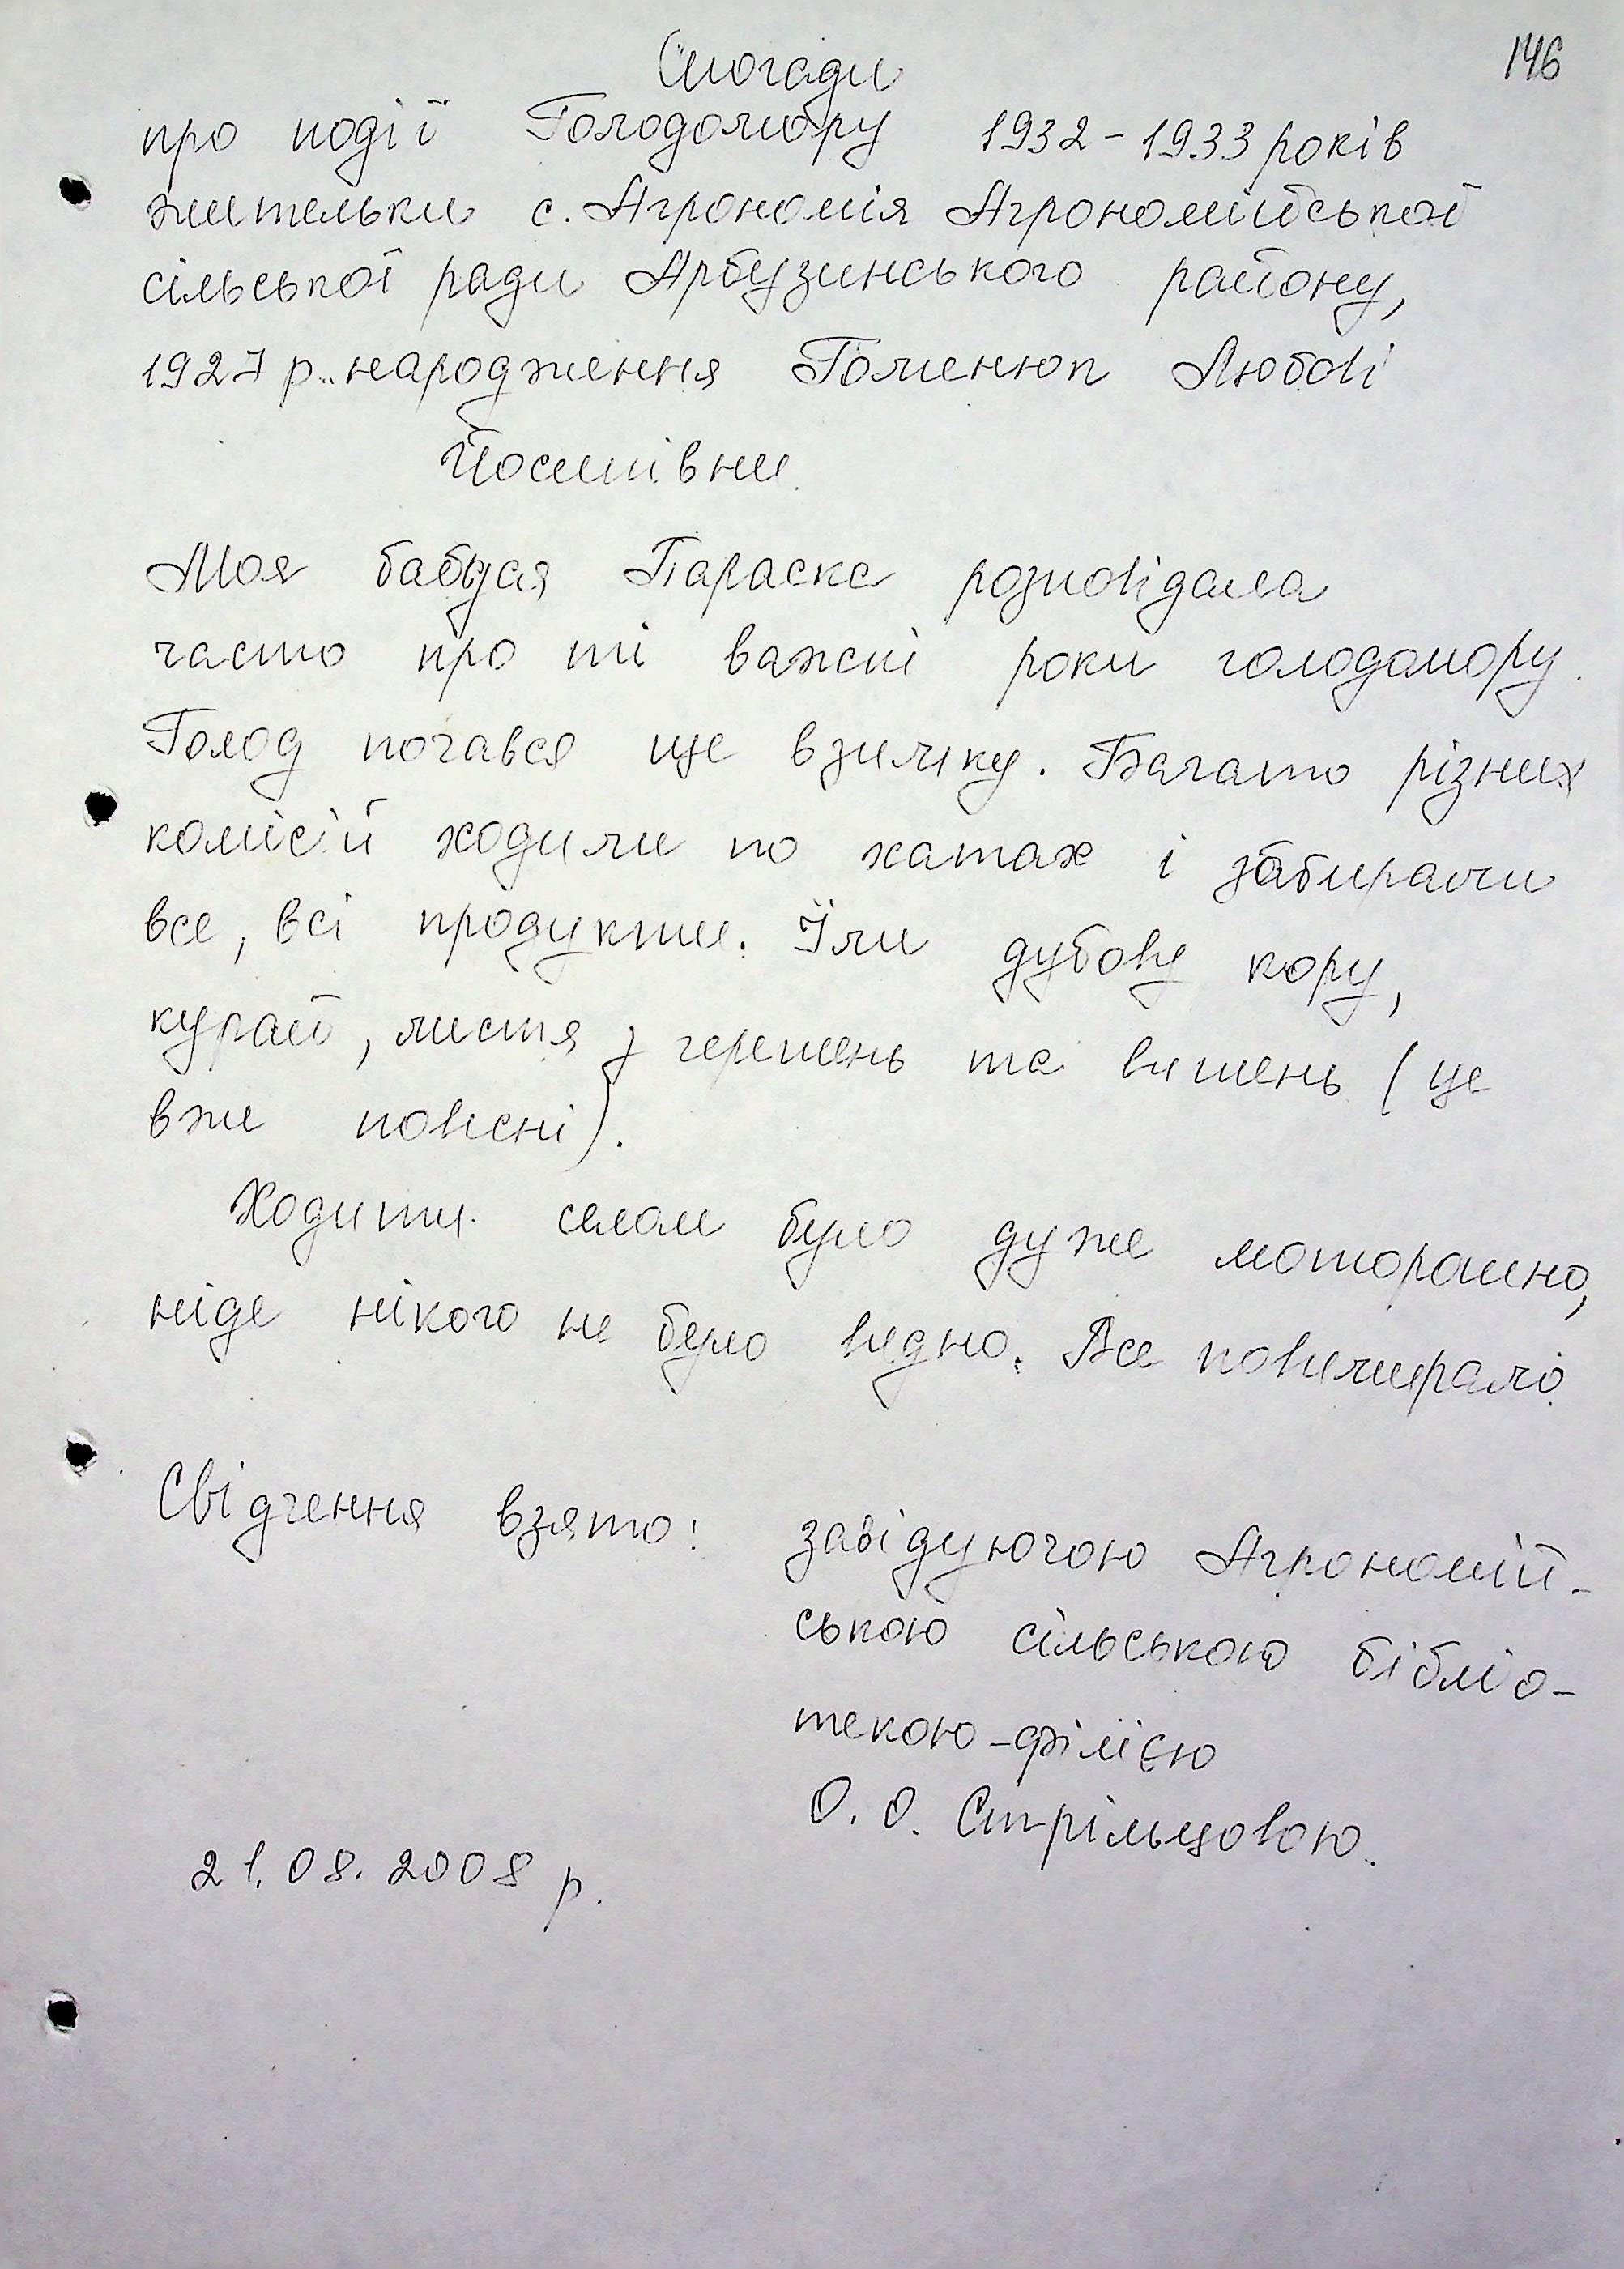 146
Спогади
про події Голодомору 1932-1933 років
жительки с. Агрономія Агрономійської
сільської ради Арбузинського району,
1927 р. народження Гоменюк Любові
Йосипівни.
Моя бабуся Параска розповідала
часто про ті важкі роки голодомору.
Голод почався ще взимку. Багато різних
комісій ходили по хатах і забирали
все, всі продукти. Їли дубову кору,
курай, листя з черешень та вишень (це
вже повесні).
Ходити селом було дуже моторошно,
ніде нікого не було видно. Все повимирало.
Свідчення взято: завідуючою Агрономій-
ською сільською бібліо-
текою-філією
О. О. Стрільцовою.
21.08.2008 р.